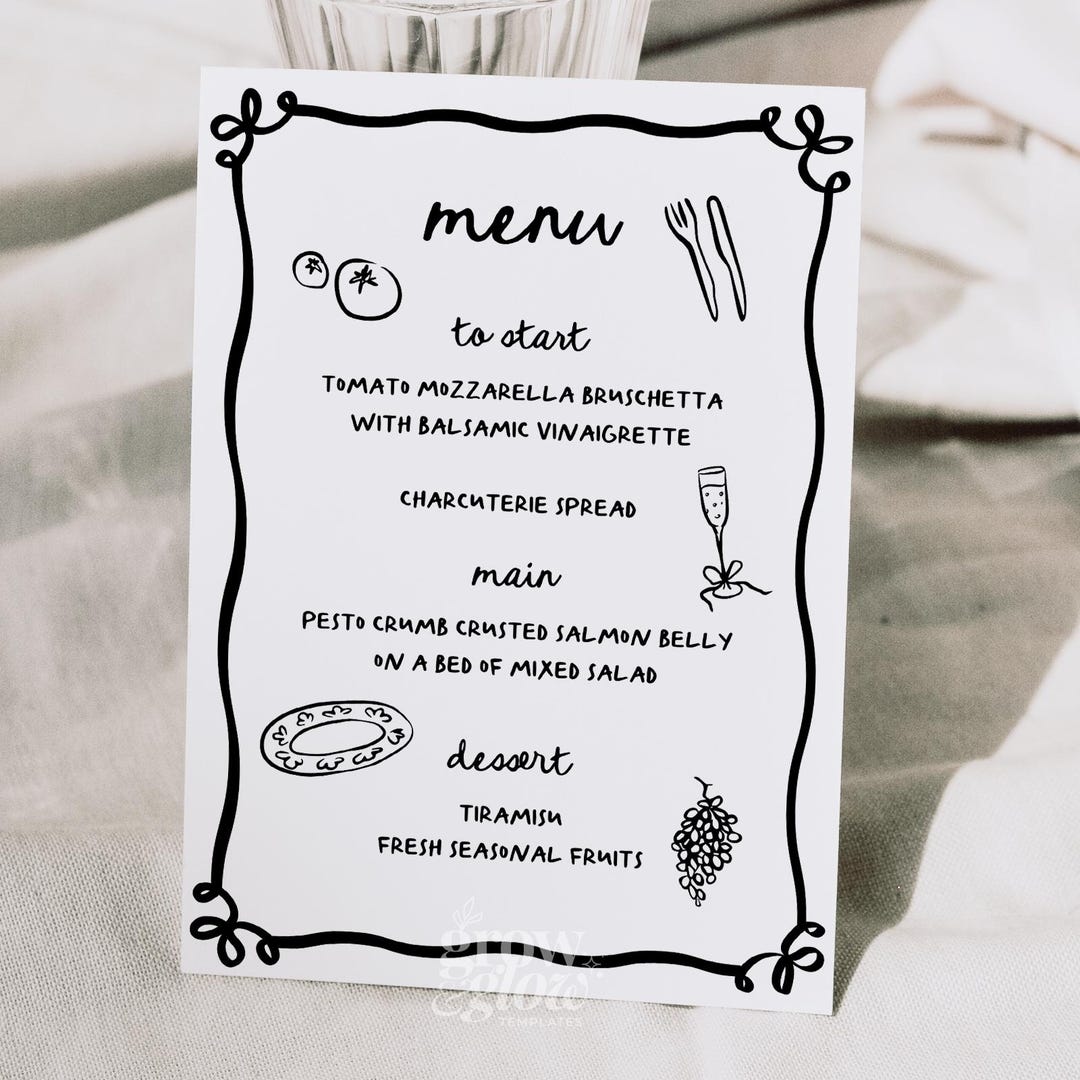 menu
to start
TOMATO MOZZARELLA BRUSCHETTA
WITH BALSAMIC VINAIGRETTE
CHARCUTERIE SPREAD
main
PESTO CRUMB CRUSTED SALMON BELLY
ON A BED OF MIXED SALAD
dessert
TIRAMISU
FRESH SEASONAL FRUITS
grow
& glow
TEMPLATES